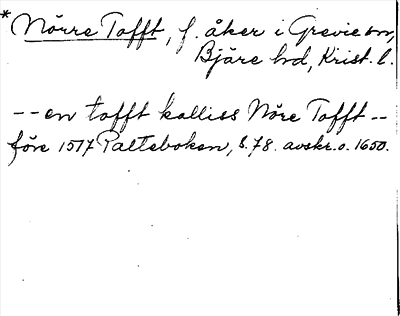 * Nörre Tofft, f. åker i Grevie sn,
Bjäre hd, Krist. l.
-- en tofft kalliss Nöre Tofft --
före 1517 Palteboken, s. 78. avskr. o. 1650.